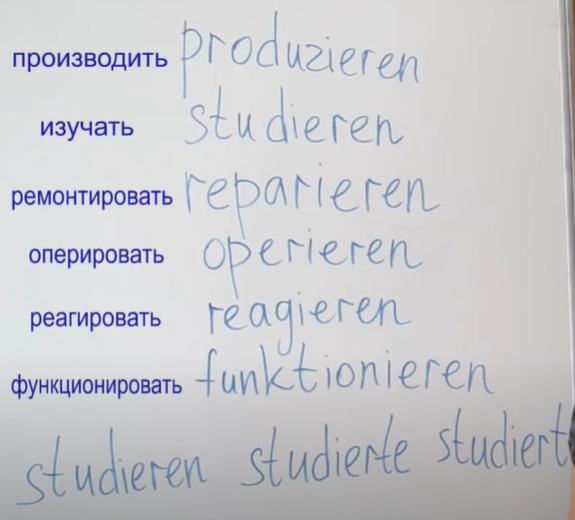 производить produzieren
изучать studieren
ремонтировать reparieren
оперировать operieren
реагировать reagieren
функционировать funktionieren
studieren studierte studiert